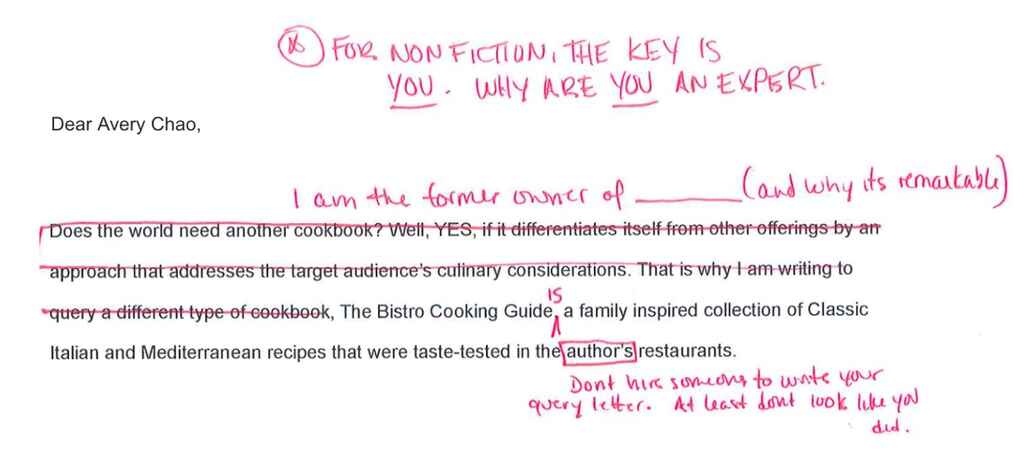 * FOR NONFICTION, THE KEY IS
YOU. WHY ARE YOU AN EXPERT.
Dear Avery Chao,
I am the former owner of ______ (and why its remarkable)
Does the world need another cookbook? Well, YES, if it differentiates itself from other offerings by an
approach that addresses the target audience's culinary considerations. That is why I am writing to
IS
query a different type of cookbook, The Bistro Cooking Guide, a family inspired collection of Classic
Italian and Mediterranean recipes that were taste-tested in the author's restaurants.
Dont hire someone to write your
query letter. At least dont look like you
did.